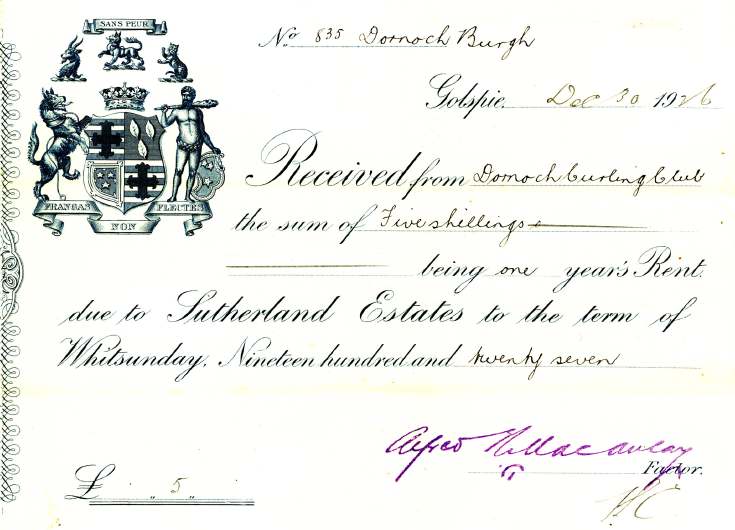 SANS PEUR
FRANGAS NON FLECTES
No 835 Dornoch Burgh
Golspie, Dec 30 1926
Received from Dornoch Curling Club
the sum of Five shillings
being one year's Rent.
due to Sutherland Estates to the term of
Whitsunday, Nineteen hundred and twenty seven
Alfred N. Macaulay
Factor.
£ " 5 "